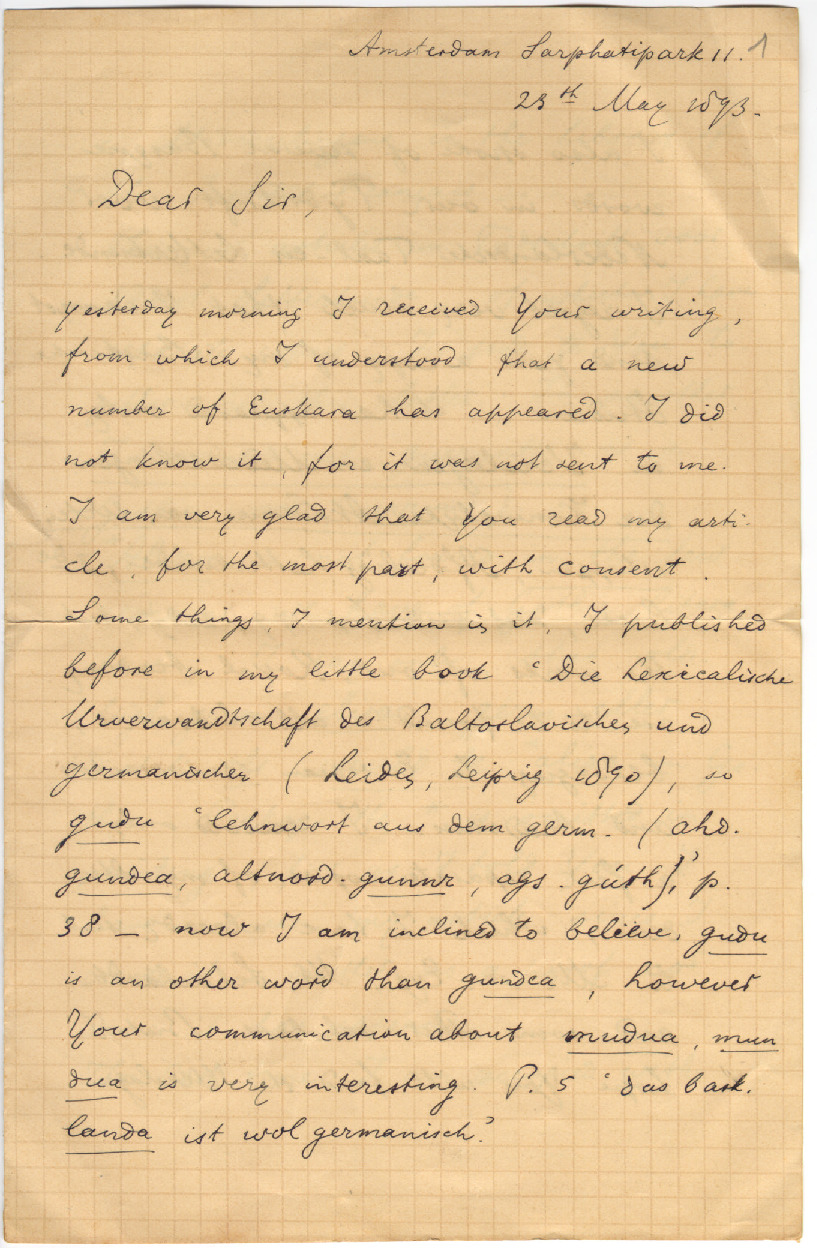 Amsterdam Sarphatipark 11. 1
23th May 1893.
Dear Sir,
yesterday morning I received Your writing,
from which I understood that a new
number of Euskara has appeared. I did
not know it, for it was not sent to me.
I am very glad that You read my arti-
cle, for the most part, with consent.
Some things, I mention in it, I published
before in my little book 'Die Lexicalische
Urverwandtschaft des Baltoslavischen und
germanischen (Leiden, Leipzig 1890), so
gudu 'lehnwort aus dem germ. (ahd.
gundea, altnord. gunnr, ags. gúth),' p.
38 — now I am inclined to believe, gudu
is an other word than gundea, however
Your communication about mudua, mun
dua is very interesting. P. 5 'das bask.
landa ist wol germanisch.'